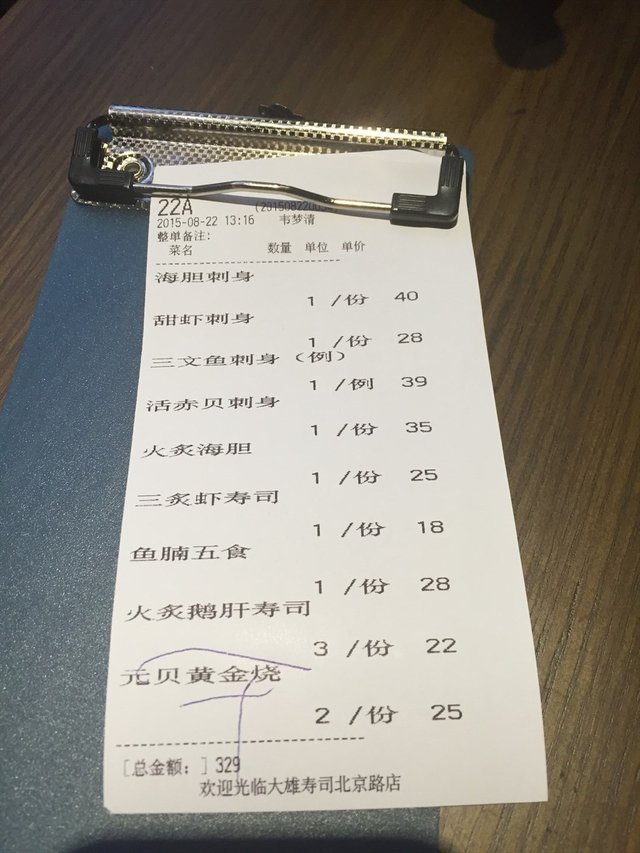 22A
2015-08-22 13:16 韦梦清
整单备注:
菜名 数量 单位 单价
海胆刺身
1 /份 40
甜虾刺身
1 /份 28
三文鱼刺身(例)
1 /例 39
活赤贝刺身
1 /份 35
火炙海胆
1 /份 25
三炙虾寿司
1 /份 18
鱼腩五食
1 /份 28
火炙鹅肝寿司
3 /份 22
元贝黄金烧
2 /份 25
[总金额: ] 329
欢迎光临大雄寿司北京路店